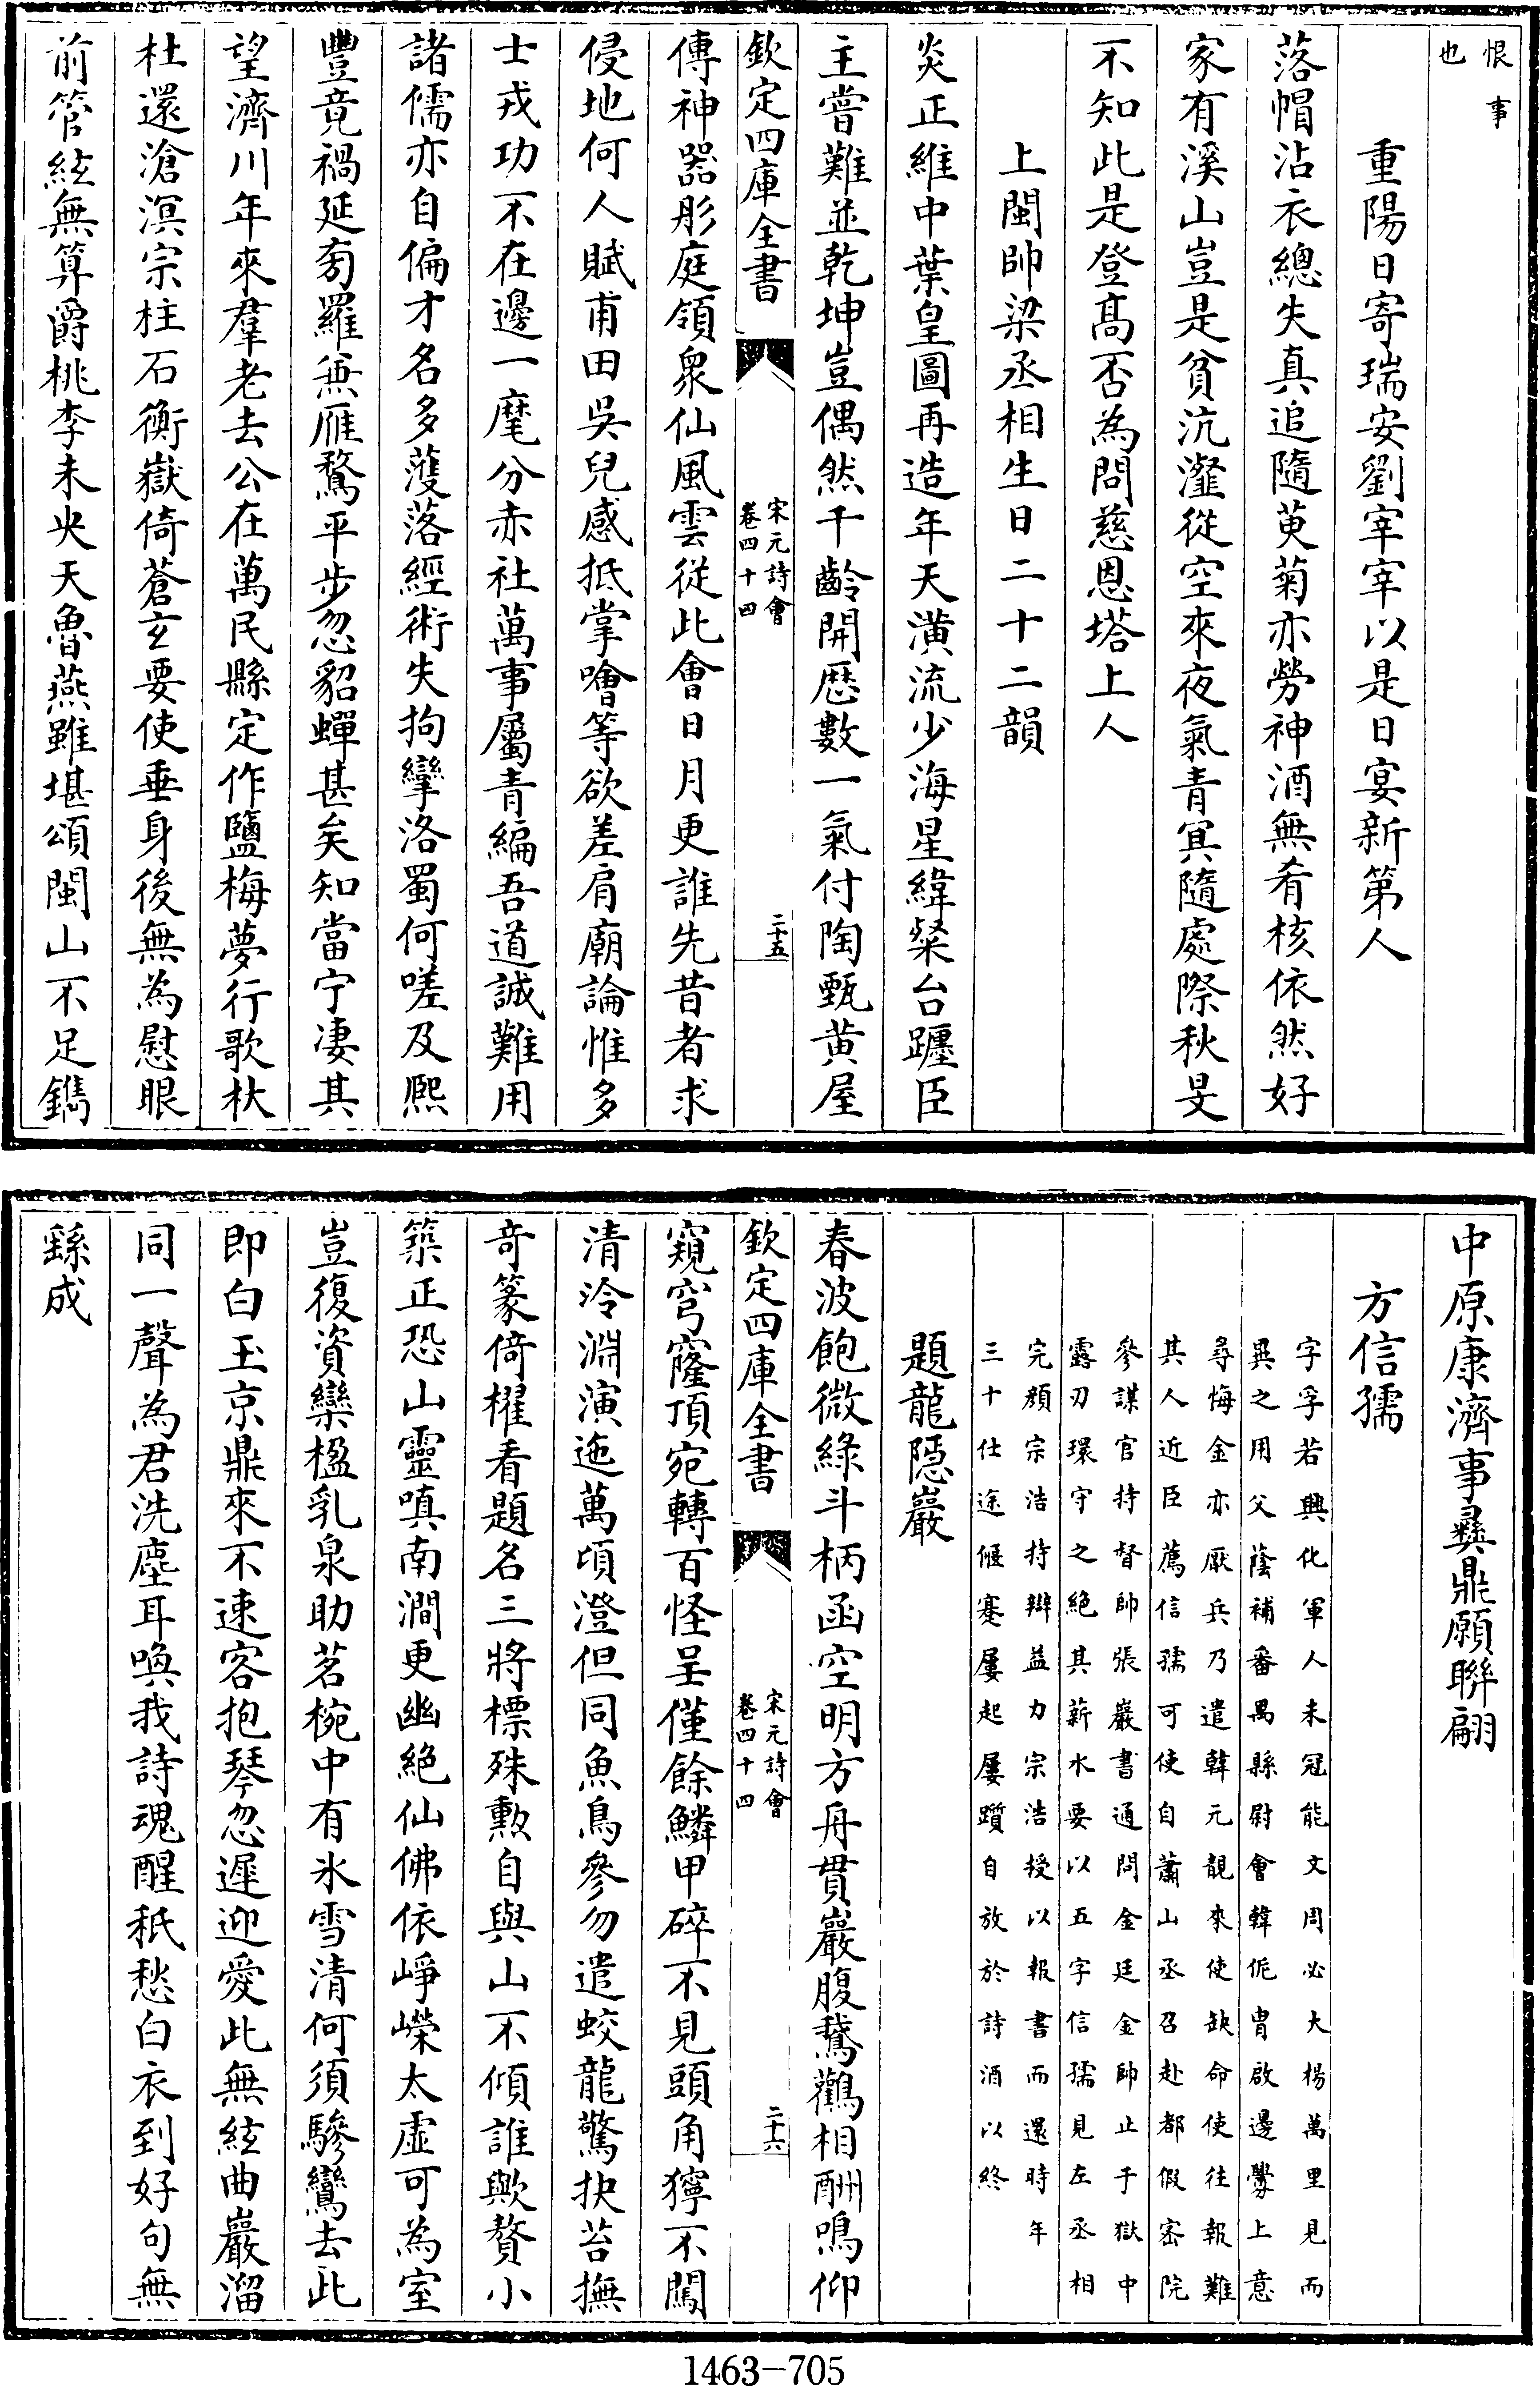 恨事
也
重陽日寄瑞安劉宰宰以是日宴新第人
落帽沾衣總失真追隨萸菊亦勞神酒無肴核依然好
家有溪山豈是貧沆瀣從空來夜氣青㝠隨處際秋旻
不知此是登髙否為問慈恩塔上人
上閩帥梁丞相生日二十二韻
炎正維中葉皇圖再造年天潢流少海星緯粲台躔臣
主嘗難並乾坤豈偶然千齡開厯數一氣付陶甄黄屋
欽定四庫全書
宋元詩會
卷四十四
二十五
傳神器彤庭領衆仙風雲從此會日月更誰先昔者求
侵地何人賦甫田吳兒感抵掌噲等欲差肩廟論惟多
士戎功不在邊一麾分赤社萬事屬青編吾道誠難用
諸儒亦自偏才名多濩落經術失拘攣洛蜀何嗟及熈
豐竟禍延匏羅無雁鶩平步忽貂蟬甚矣知當宁凄其
望濟川年來羣老去公在萬民縣定作鹽梅夢行歌杕
杜還滄溟宗柱石衡嶽倚蒼玄要使垂身後無為慰眼
前管絃無算爵桃李未央天魯燕雖堪頌閩山不足鐫
中原康濟事彞鼎願聯翩
方信孺
字孚若興化軍人未冠能文周必大楊萬里見而
異之用父蔭補番禺縣尉會韓侂胄啟邊釁上意
尋悔金亦厭兵乃遣韓元靚來使缺命使往報難
其人近臣薦信孺可使自蕭山丞召赴都假宻院
參謀官持督帥張巖書通問金廷金帥止于獄中
露刃環守之絶其薪水要以五字信孺見左丞相
完顔宗浩持辯益力宗浩授以報書而還時年
三十仕途偃蹇屢起屢躓自放於詩酒以終
題龍隠巖
春波飽微綠斗柄函空明方舟貫巖腹鵞鸛相酬鳴仰
欽定四庫全書
宋元詩會
卷四十四
二十六
窺穹窿頂宛轉百怪呈僅餘鱗甲碎不見頭角獰不闖
清泠淵演迤萬頃澄但同魚鳥參勿遣蛟龍驚抉苔撫
竒篆倚櫂看題名三將標殊勲自與山不傾誰歟贅小
築正恐山靈嗔南澗更幽絶仙佛依崢嶸太虛可為室
豈復資欒楹乳泉助茗椀中有氷雪清何須驂鸞去此
即白玉京鼎來不速客抱琴忽遲迎愛此無絃曲巖溜
同一聲為君洗塵耳喚我詩魂醒秪愁白衣到好句無
繇成
1463-705